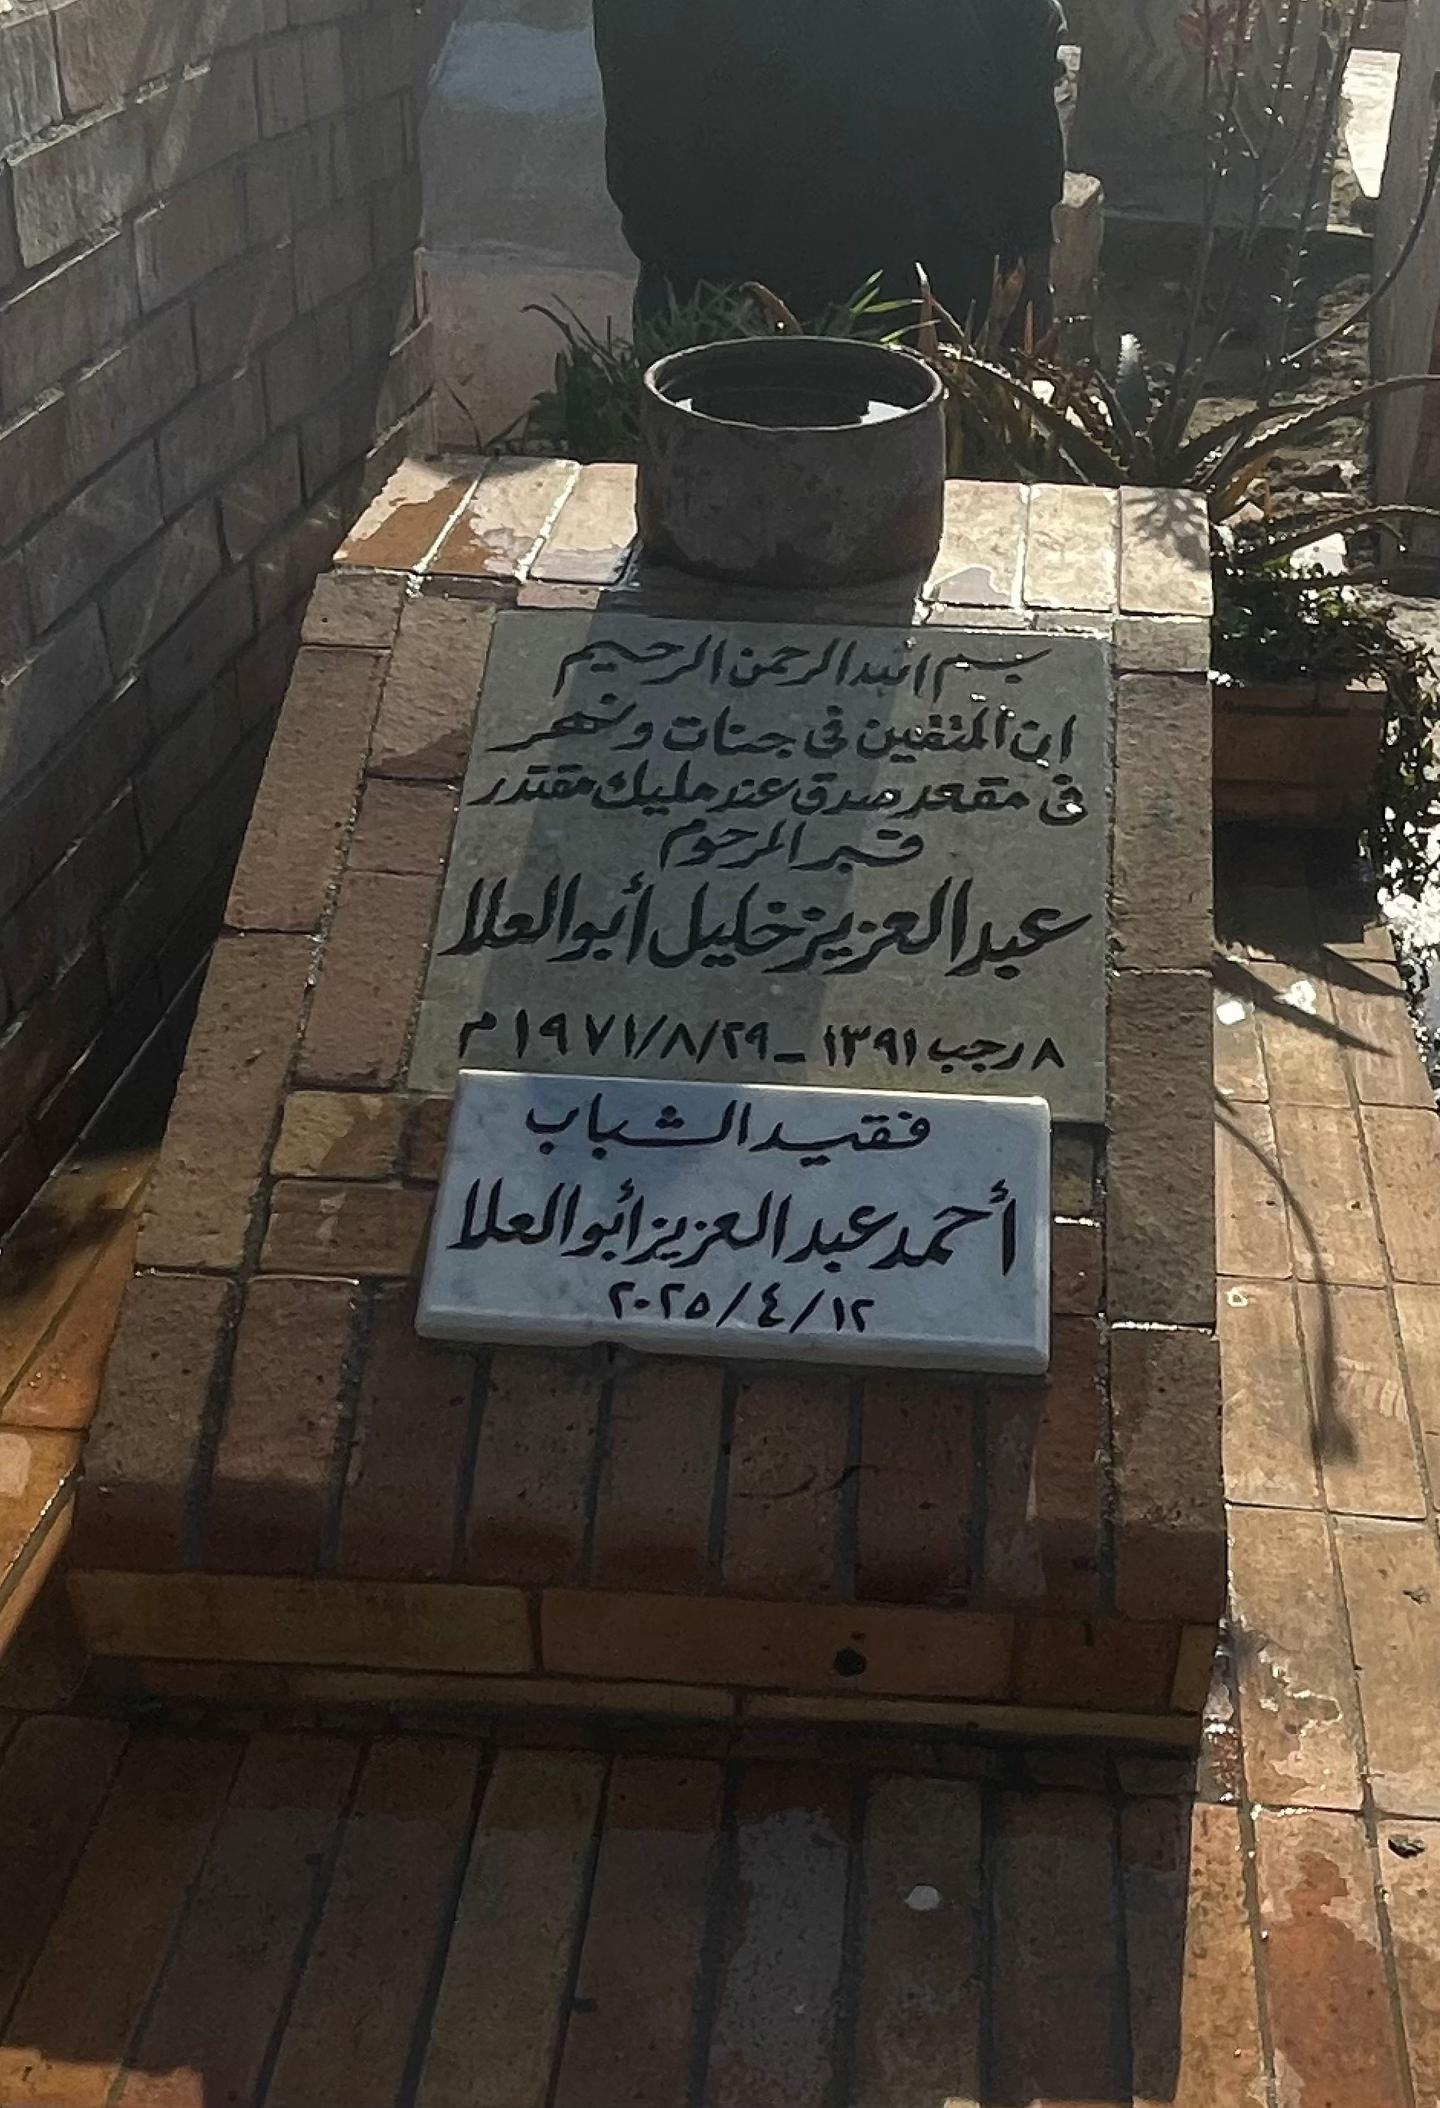 بسم الله الرحمن الرحيم
ان المتقين فى جنات ونهر
فى مقعد صدق عند مليك مقتدر
قبر المرحوم
عبد العزيز خليل أبو العلا
٨ رجب ١٣٩١ - ١٩٧١/٨/٢٩ م
فقيد الشباب
أحمد عبد العزيز أبو العلا
٢٠٢٥/٤/١٢